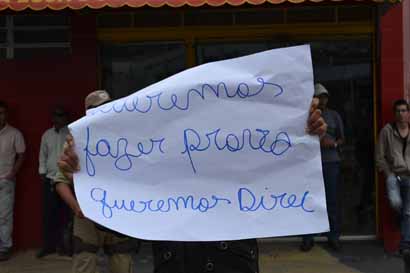 queremos
fazer prova
queremos Direi